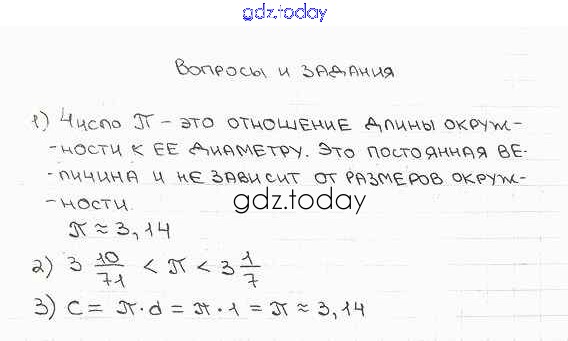 gdz.today
Вопросы и задания
1) Число π – это отношение длины окруж-
-ности к ее диаметру. Это постоянная ве-
-личина и не зависит от размеров окруж-
-ности.
gdz.today
π ≈ 3,14
2) 3 10/71 < π < 3 1/7
3) C = π·d = π·1 = π ≈ 3,14